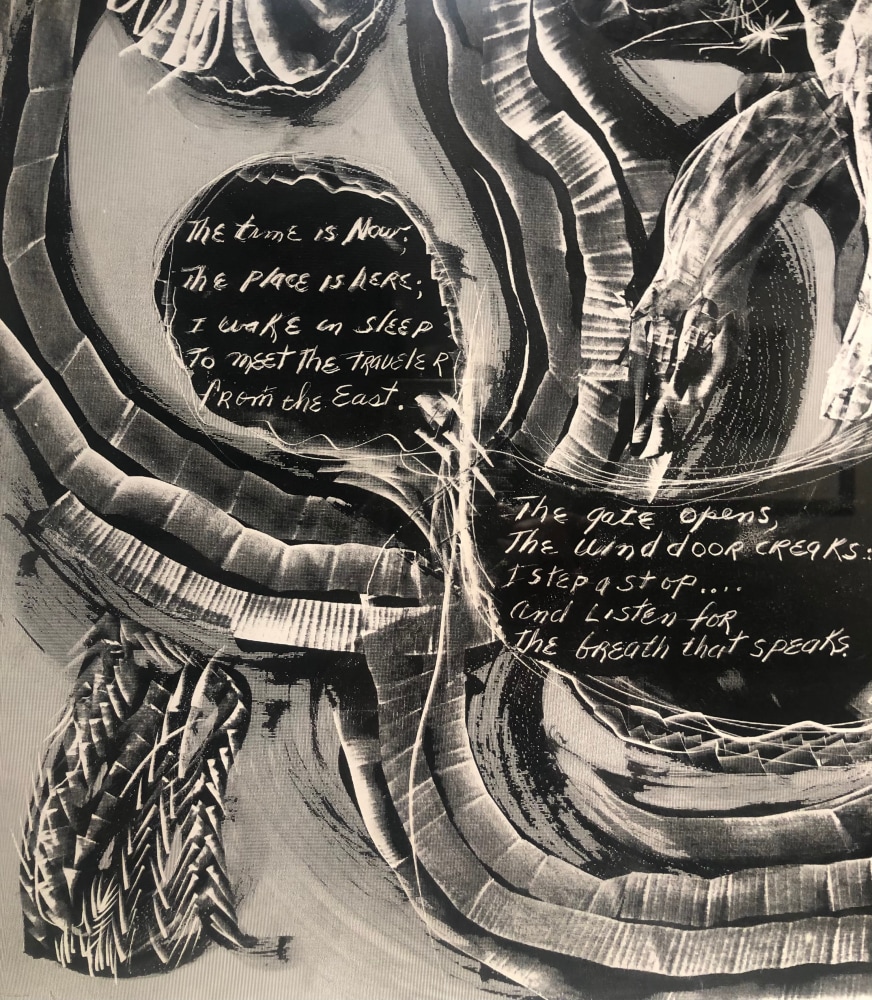 The time is Now;
The place is here;
I wake in sleep
To meet the traveler
from the East.
The gate opens,
The wind door creaks:
I step a stop....
and Listen for
the breath that speaks.